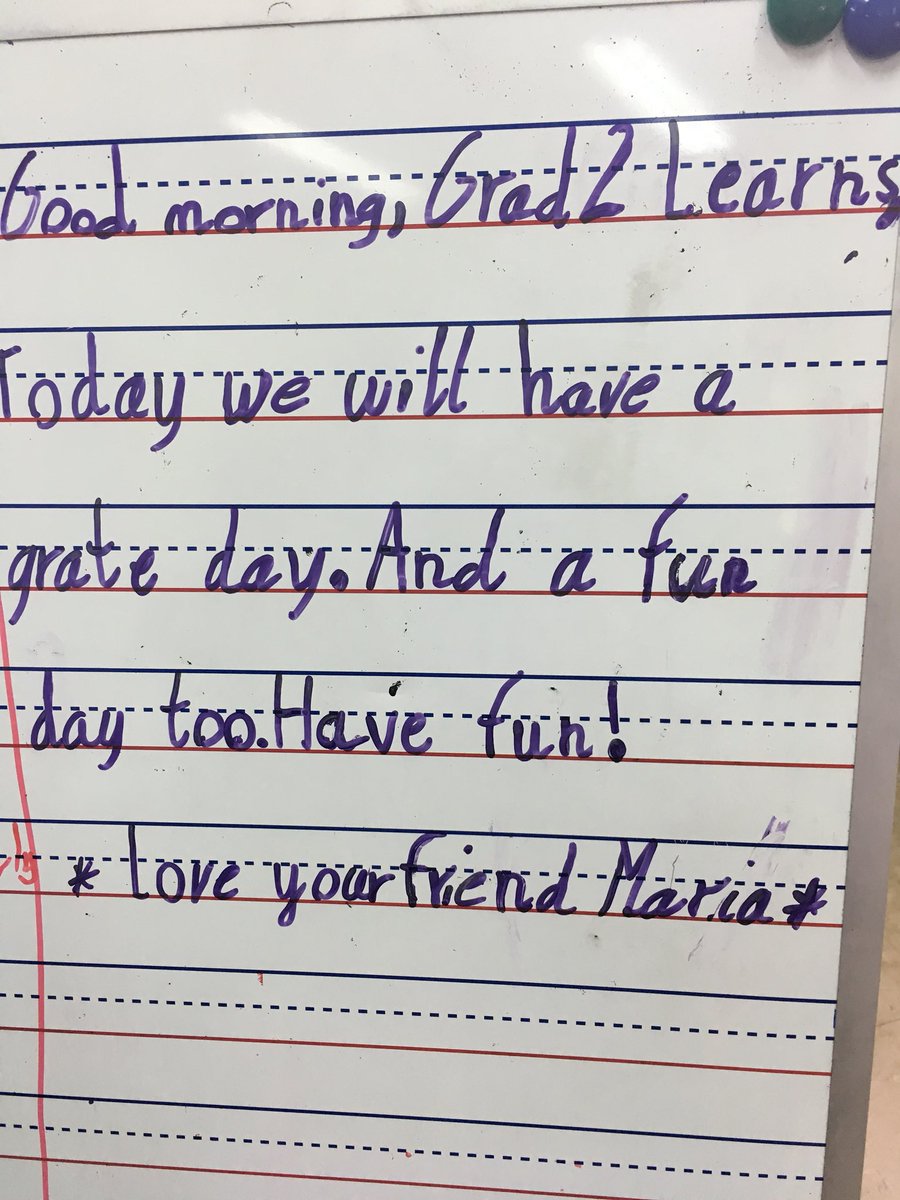 Good morning, Grad 2 Learns,
Today we will have a
grate day. And a fun
day too. Have fun!
* Love your friend Maria *